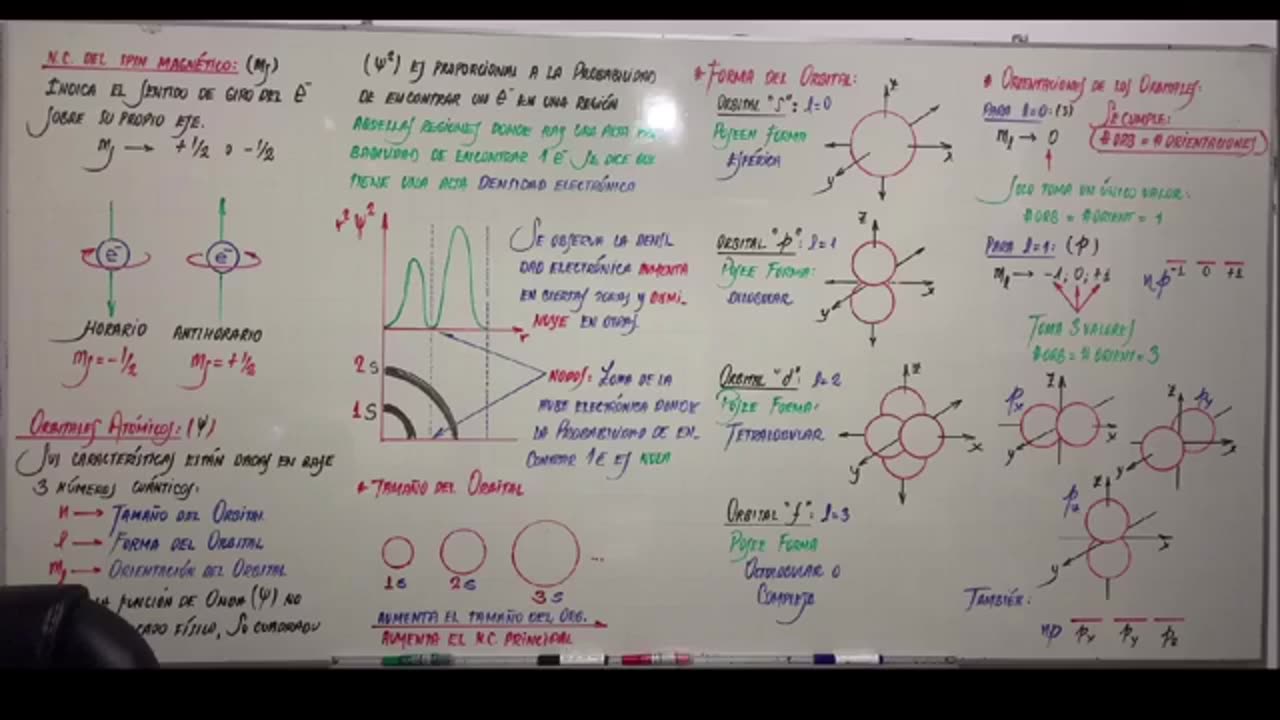 N.C. DEL SPIN MAGNÉTICO: (ms)
INDICA EL SENTIDO DE GIRO DEL e-
SOBRE SU PROPIO EJE.
ms → +1/2 o -1/2
e- e-
HORARIO ANTIHORARIO
ms = -1/2 ms = +1/2
ORBITALES ATÓMICOS: (ψ)
SUS CARACTERÍSTICAS ESTÁN DADAS EN BASE
3 NÚMEROS CUÁNTICOS:
n → TAMAÑO DEL ORBITAL
l → FORMA DEL ORBITAL
ml → ORIENTACIÓN DEL ORBITAL
LA FUNCIÓN DE ONDA (ψ) NO
FÍSICO, SU CUADRADO
(ψ²) ES PROPORCIONAL A LA PROBABILIDAD
DE ENCONTRAR UN e- EN UNA REGIÓN
AQUELLAS REGIONES DONDE HAY UNA ALTA PRO
BABILIDAD DE ENCONTRAR 1 e- SE DICE QUE
TIENE UNA ALTA DENSIDAD ELECTRÓNICA
r² ψ²
r
2s
1s
SE OBSERVA LA DENSI
DAD ELECTRÓNICA AUMENTA
EN CIERTAS ZONAS Y DISMI-
NUYE EN OTRAS.
NODOS: ZONA DE LA
NUBE ELECTRÓNICA DONDE
LA PROBABILIDAD DE EN-
CONTRAR 1 e- ES NULA
* TAMAÑO DEL ORBITAL
1s 2s 3s ...
AUMENTA EL TAMAÑO DEL ORB.
AUMENTA EL N.C. PRINCIPAL
* FORMA DEL ORBITAL:
ORBITAL "s": l=0
POSEEN FORMA
ESFÉRICA
z
x
y
ORBITAL "p": l=1
POSEE FORMA:
DILOBULAR
z
x
y
ORBITAL "d": l=2
POSEE FORMA:
TETRALOBULAR
z
x
y
ORBITAL "f": l=3
POSEE FORMA
OCTOLOBULAR O
COMPLEJA
* ORIENTACIONES DE LOS ORBITALES:
PARA l=0: (s)
ml → 0
SE CUMPLE:
# ORB = # ORIENTACIONES
SOLO TOMA UN ÚNICO VALOR:
# ORB = # ORIENT = 1
PARA l=1: (p)
ml → -1, 0, +1
np -1 0 +1
TOMA 3 VALORES
# ORB = # ORIENT = 3
px z x y
py z x y
pz z x y
TAMBIÉN:
np px py pz